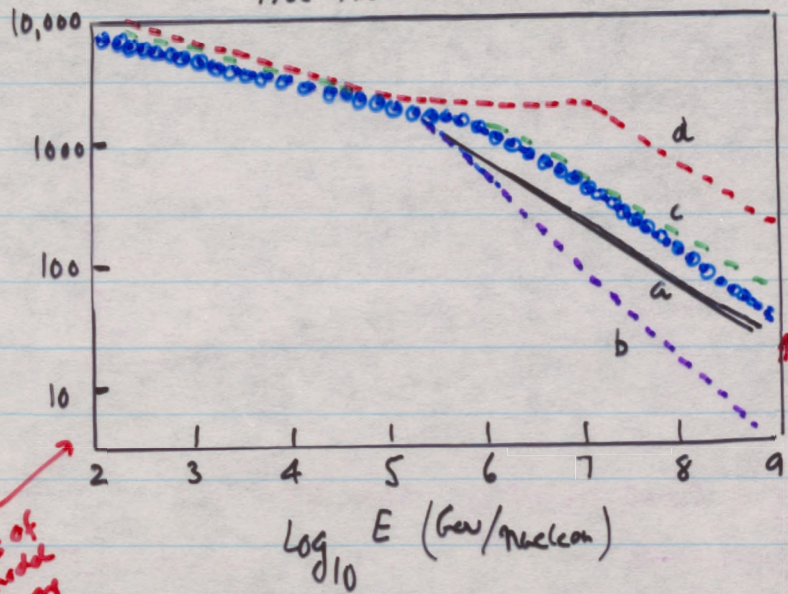 10,000
1000
100
10
d
c
a
b
2 3 4 5 6 7 8 9
Log10 E (Gev/nucleon)
of